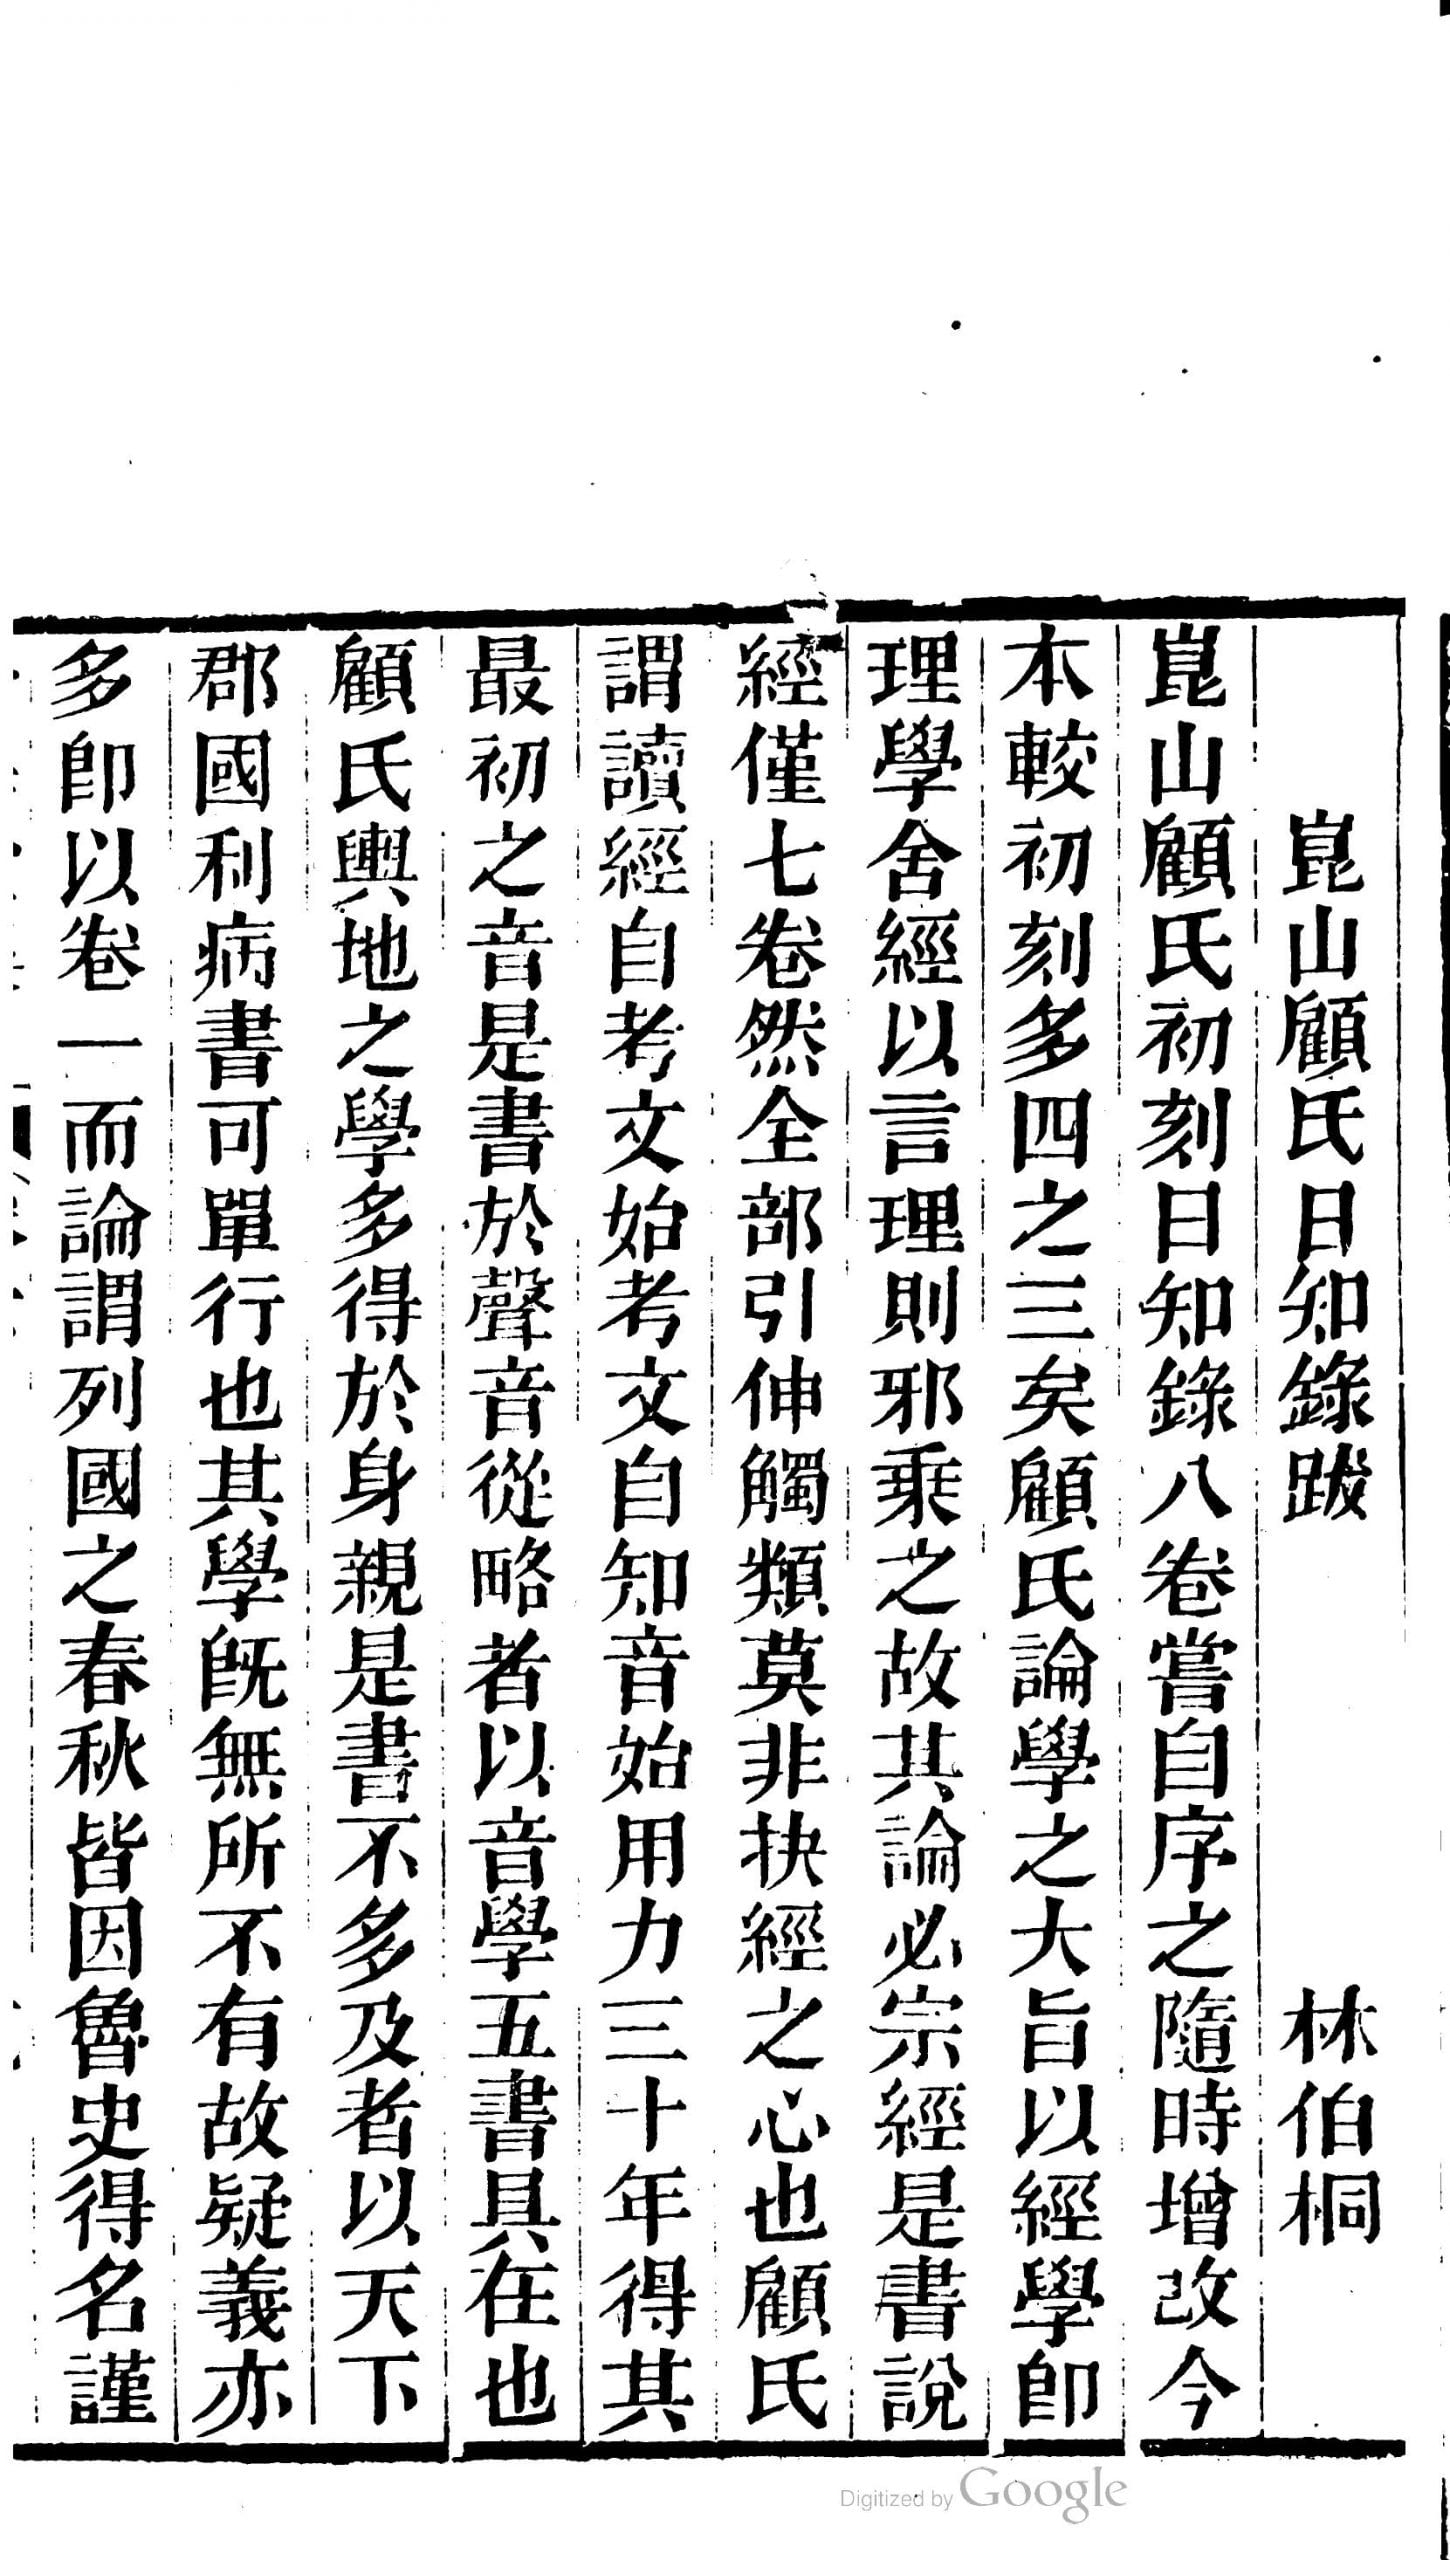 崑山顧氏日知錄跋 林伯桐
崑山顧氏初刻日知錄八卷嘗自序之隨時增改今
本較初刻多四之三矣顧氏論學之大旨以經學卽
理學舍經以言理則邪乘之故其論必宗經是書說
經僅七卷然全部引伸觸類莫非抉經之心也顧氏
謂讀經自考文始考文自知音始用力三十年得其
最初之音是書於聲音從略者以音學五書具在也
顧氏輿地之學多得於身親是書不多及者以天下
郡國利病書可單行也其學旣無所不有故疑義亦
多卽以卷一而論謂列國之春秋皆因魯史得名謹
Digitized by Google